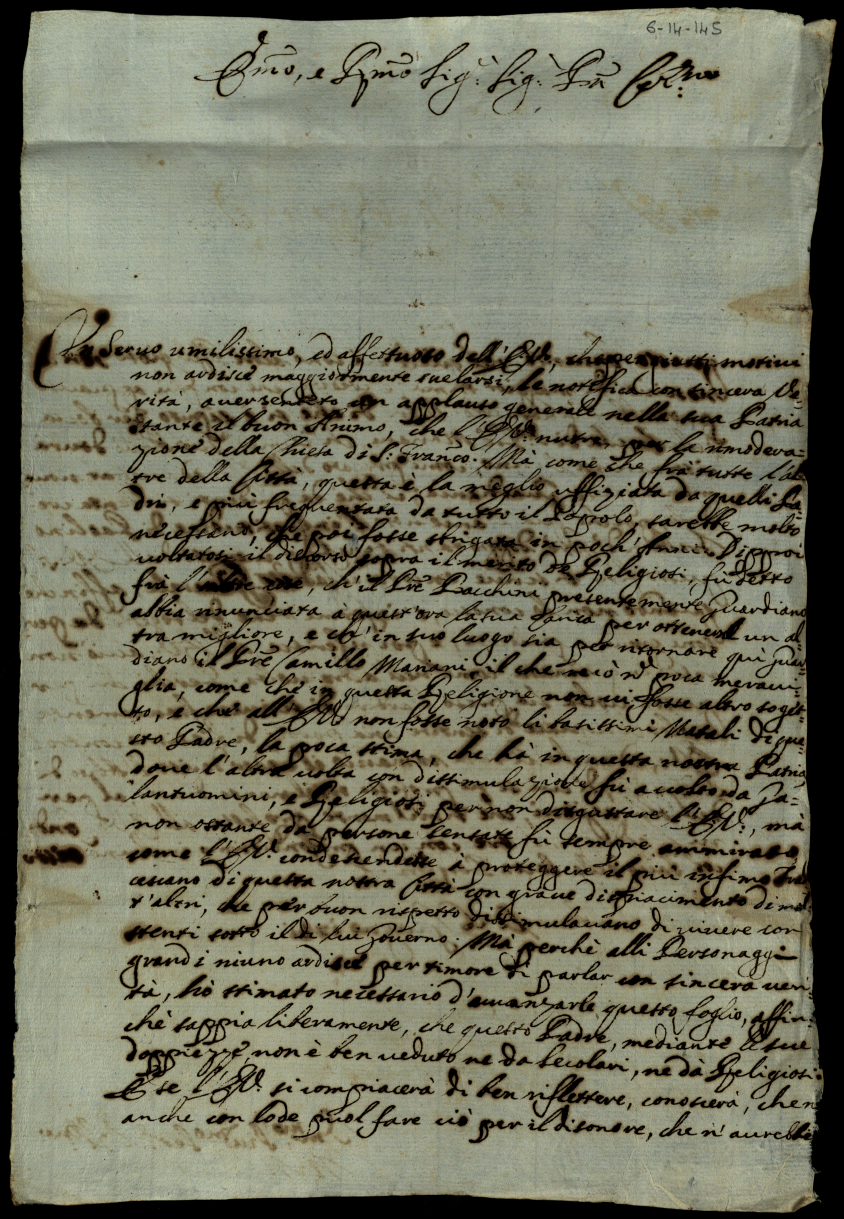 6-14-145
Em̃o, e Rm̃o Sig.r Sig.r Pr̃n Col.mo
Un Servo umilissimo, ed affettuoso dell'Em.V., che per giusti motivi
non ardisce maggiormente suelarsi, le notifica con sincera Ve=
rità, auer sentito con applauso generale nella sua Patria
stante il buon Animo, che l'Em.V. nutre per la rimodera=
zione della Chiesa di S. Franco. Mà come che frà tutte l'al
tre della Città, questa è la meglio uffiziata da quelli Pa=
dri, e più frequentata da tutto il Popolo, sarebbe molto
necessario, che poi fosse sbrigata in poch'Anni. Dippoi
uoltatosi il discorso sopra il merito de Religiosi, fù detto
frà l'altre cose, ch'il Prẽ Bacchini presentemente Guardiano
abbia rinunciata a quest'ora la sua Carica per ottenerne un al=
tra migliore, e ch'in suo luogo sia per ritornare quì Guar
diano il Prẽ Camillo Mariani, il che recò nõ poca meraui=
glia, come che in questa Religione non ui fosse altro sogget=
to, e che all'Em.V. non fosse noto li bassissimi Natali di que=
sto Padre, la poca stima, che hà in questa nostra Patria,
doue l'altra uolta con dissimulazione fù accolto da Ga=
lantuomini, e Religiosi per non disgustare l'Em.V., mà
non ostante da persone sensate fù sempre ammirato,
come l'Em.V. condescendesse à proteggere il più infimo Fran
cescano di questa nostra Città con graue dispiacimento di mol
t'altri, che per buon rispetto dissimulauano di uiuere con
stenti sotto il di lui Gouerno. Mà perchè alli Personaggi
grandi niuno ardisce per timore di parlar con sincera ueri
tà, hò stimato necessario d'auuanzarle questo foglio, affin=
chè sappia liberamente, che questo Padre, mediante le sue
doppiezze, non è ben ueduto ne da Secolari, ne dà Religiosi.
E se l'Em.V. si compiacerà di ben riflettere, conoscerà, che n
anche con lode puol fare ciò per il disonore, che n'aurebbe